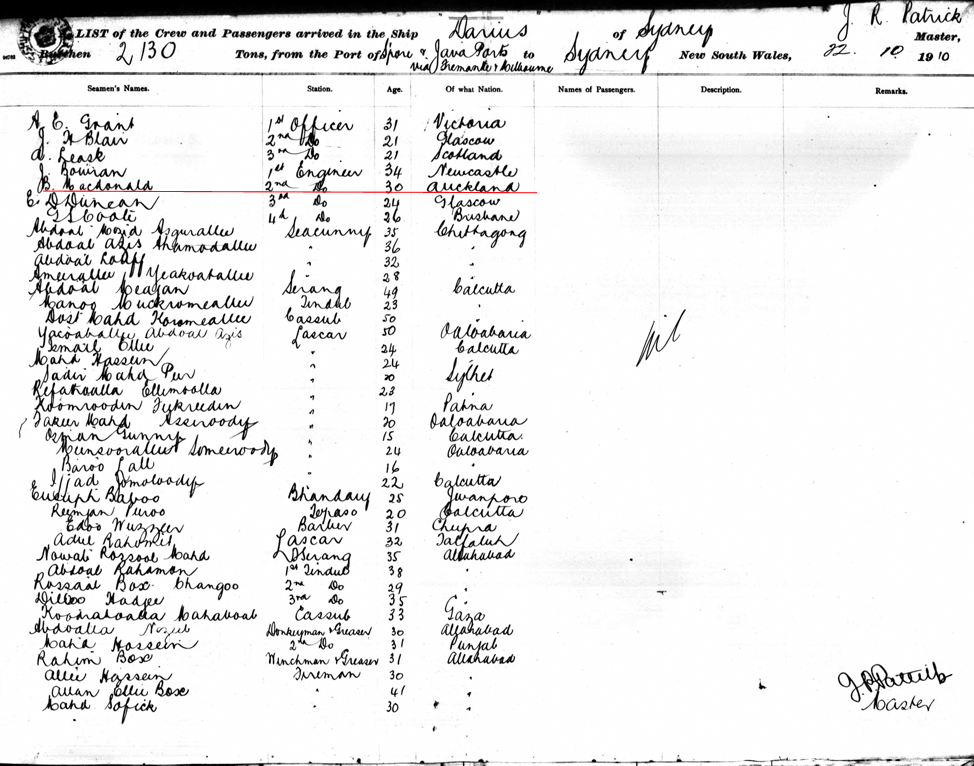 LIST of the Crew and Passengers arrived in the Ship Darius of Sydney J. R. Patrick Master,
Burthen 2130 Tons, from the Port of Spore & Java Ports to Sydney New South Wales, 22. 10 1910
via Fremantle & Melbourne
Seamen's Names. Station. Age. Of what Nation. Names of Passengers. Description. Remarks.
A. E. Grant 1st Officer 31 Victoria
J. H Blair 2nd Do 21 Glascow
A. Leask 3rd Do 21 Scotland
J. Bowran 1st Engineer 34 Newcastle
B. Macdonald 2nd Do 30 Auckland
E. D Duncan 3rd Do 24 Glascow
4th Do 26 Brisbane
Abdoal Mozid Asgurallee Seacunny 35 Chittagong
Abdoal Azis Ahamodallee " 36 "
Abdoal " 32 "
Ameerallee Yeakoaballee " 28 "
Abdoal Meajan Serang 49 Calcutta
Manoo Muckromeallee Tindal 23 "
Dost Mahd Koromeallee Cassub 50 "
Yacoaballee Abdoal Azis Lascar 50 Oaloabaria
Esmail Ellie " 24 Calcutta
Mahd Hassein " 24 "
Mahd Pur " 20 Sylhet
Refatoalla Ellimoolla " 23 "
Koomroodin Fukreedin " 17 Patna
Fakeer Mahd Asseroody " 20 Oaloabaria
Osman Gunny " 15 Calcutta
Munsoorallee Someeroody " 24 Oaloabaria
Baroo Lall " 16 "
Ijjad Jomoloody " 22 Calcutta
Eusuph Baboo Bhandary 25 Jwanpore
Reemjan Puroo Topaso 20 Calcutta
Edoo Wuzzeer Barber 31 Chupra
Adul Rahomit Lascar 32
Nowab Rossool Mahd Serang 35 Allahabad
Abdoal Rahaman 1st Tindal 38 "
Rossaal Box Changoo 2nd Do 29 "
Dilloo Hadjee 3rd Do 35 "
Koodratoalla Mahaboab Cassub 33 Gaza
Abdoalla Nozub Donkeyman & Greaser 30 Allahabad
Mahd Hossein 2nd Do 31 Punjab
Rahim Box Winchman & Greaser 31 Allahabad
Allie Hassein Fireman 30 "
Allan Ellie Box " 41 "
Mahd Sofick " 30 "
Nil
J. R. Patrick
Master